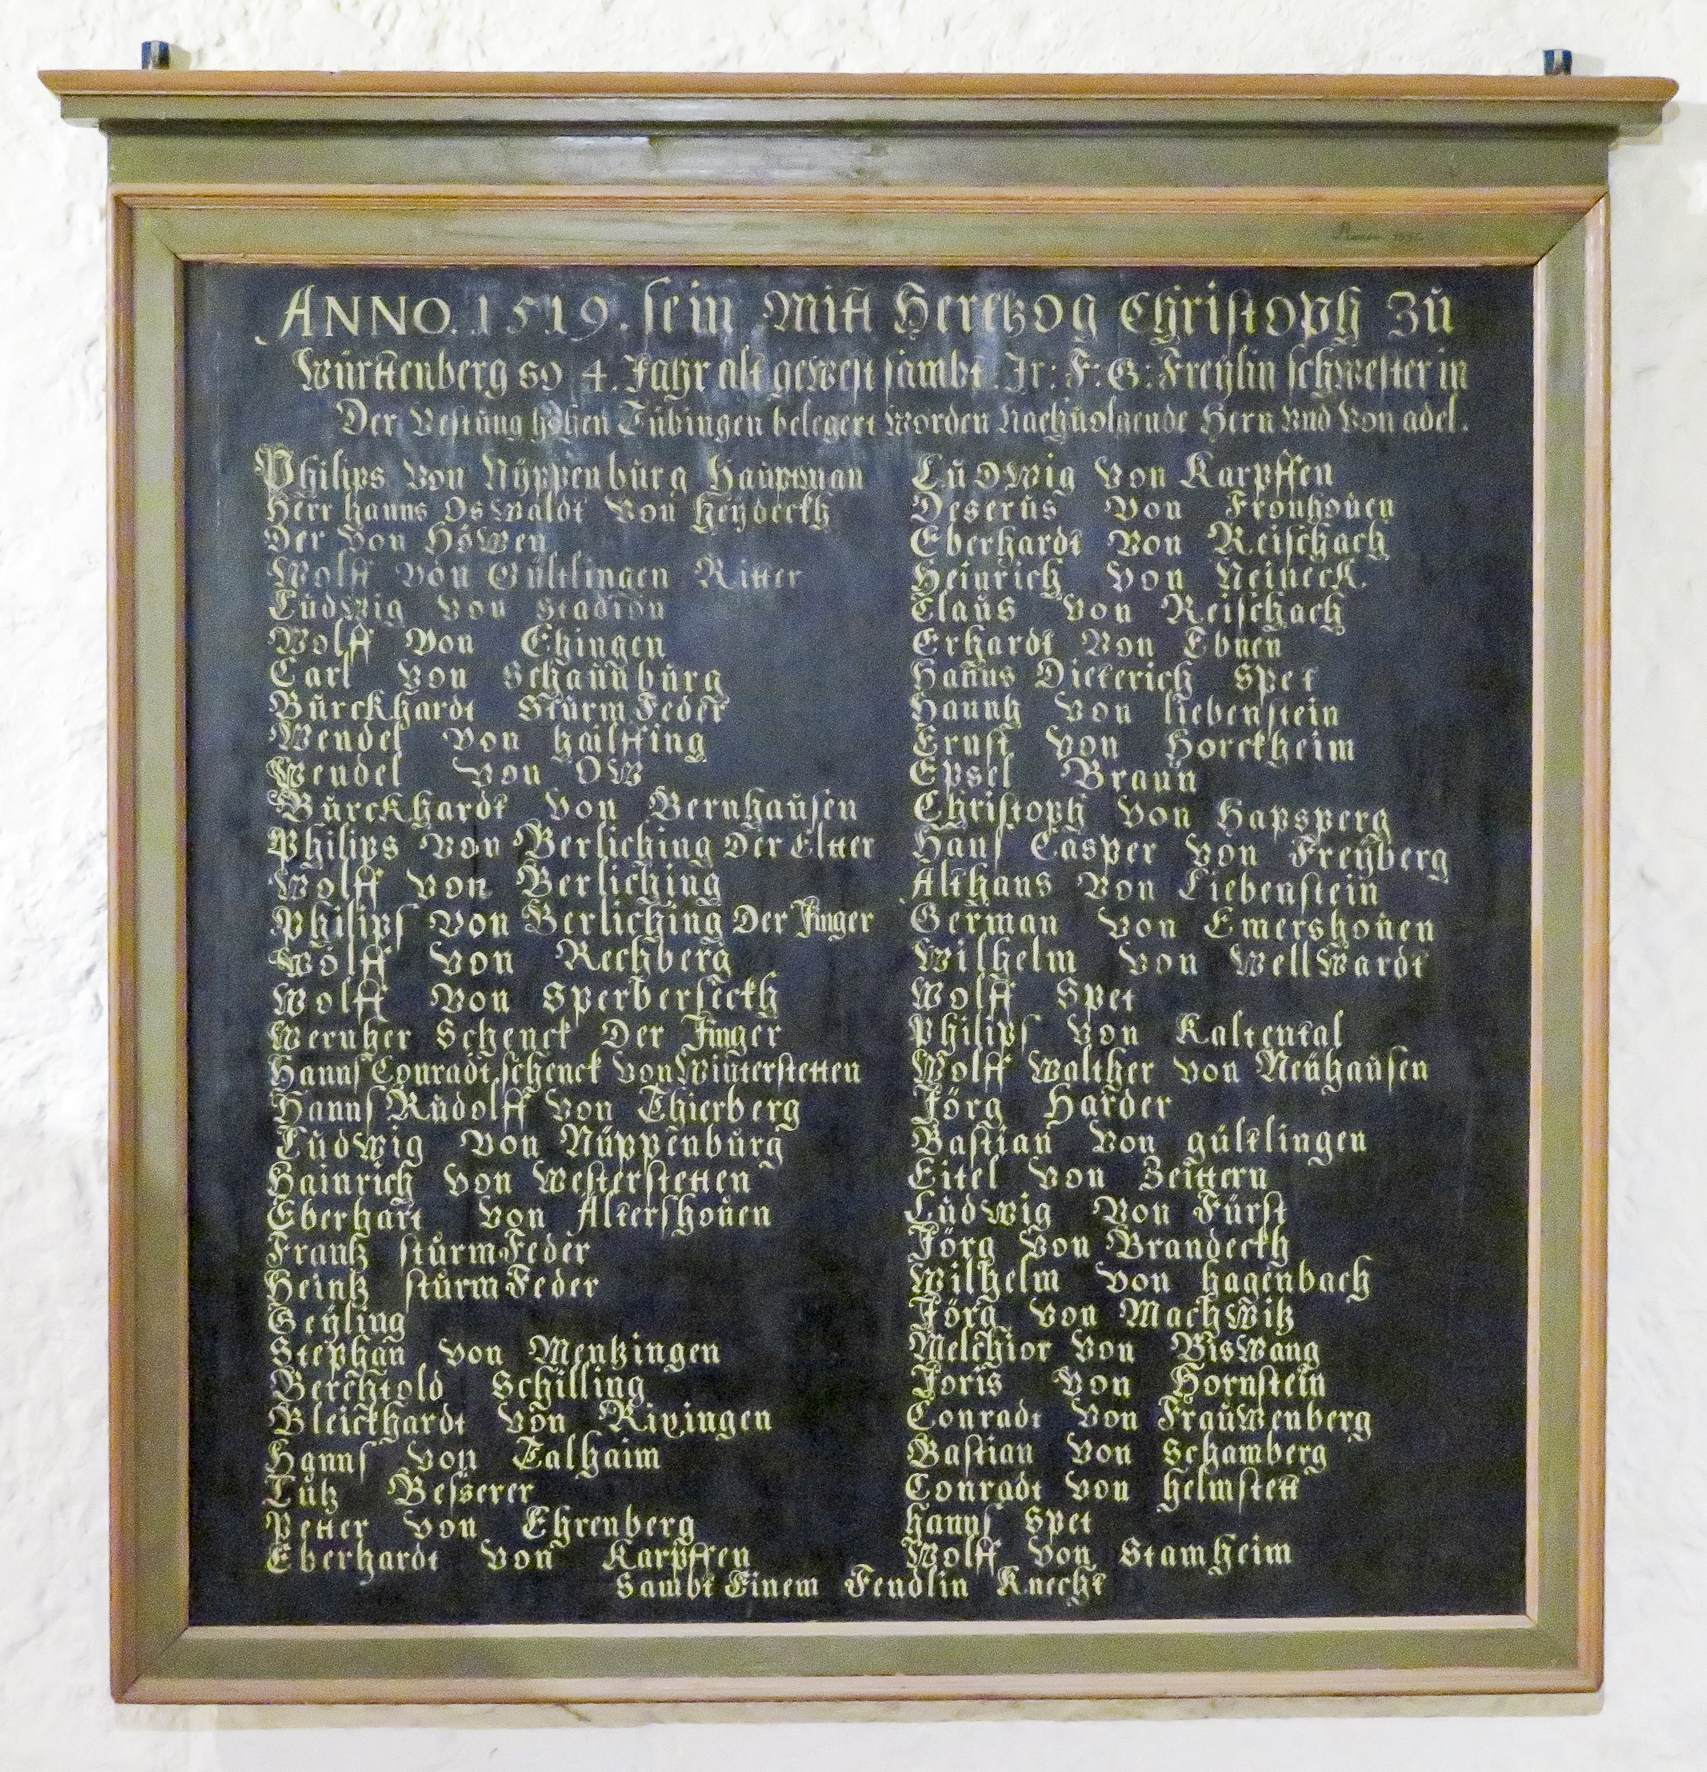 ANNO. 1519. sein Mitt Hertzog Christoph Zů
Württenberg so 4. Jahr alt gewest sambt. Ir: F: G: Freylin schwester in
Der Vestung hohen Tübingen belegert worden Nachuolgende Hern Vnd Von adel.
Philips Von Nüppenbůrg Haupman
Herr hanns Oswaldt Von heydeckh
Der Von Höwen
Wolff Von Gültlingen Ritter
Lůdwig Von Stadion
Wolff Von Ehingen
Carl Von Schaůnbůrg
Bůrckhardt Stůrmfeder
Wendel Von hailffing
Wendel Von OW
Bůrckhardt Von Bernhaůsen
Philips Von Berliching Der Eltter
Wolff Von Berliching
Philips Von Berliching Der Jinger
Wolff Von Rechberg
Wolff Von Sperberseckh
Wernher Schenck Der Jinger
Hanns Conradt schenck von Winterstetten
Hanns Růdolff Von Thierberg
Lůdwig Von Nüppenbůrg
Hainrich Von Westerstetten
Eberhart Von Altershoůen
Frantz stůrmfeder
Heintz stůrmfeder
Geyling
Stephan Von Mentzingen
Berchtold Schilling
Bleickhardt Von Rixingen
Hanns Von Talhaim
Lůtz Besserer
Petter Von Ehrenberg
Eberhardt Von Karpffen
Lůdwig Von Karpffen
Deserůs Von Fronhoůen
Eberhardt Von Reischach
Heinrich Von Neineck
Claůs Von Reischach
Erhardt Von Ebnen
Hanns Dieterich Spet
Hannß Von liebenstein
Ernst Von Horckheim
Epsel Braůn
Christoph Von Hapsperg
Hans Casper Von Freyberg
Althans Von Liebenstein
German Von Emershoůen
Wilhelm Von Wellwardt
Wolff Spet
Philips Von Kaltental
Wolff Walther Von Neühaůsen
Jörg Harder
Bastian Von gültlingen
Eitel Von Zeittern
Lůdwig Von Fürst
Jörg Von Brandeckh
Wilhelm Von hagenbach
Jörg Von Machwitz
Melchior Von Biswang
Joris Von Hornstein
Conradt Von Fraůwenberg
Bastian Von Schamberg
Conradt Von helmstett
hanns Spet
Wolff Von Stamheim
Sambt Einem Fendlin Knecht